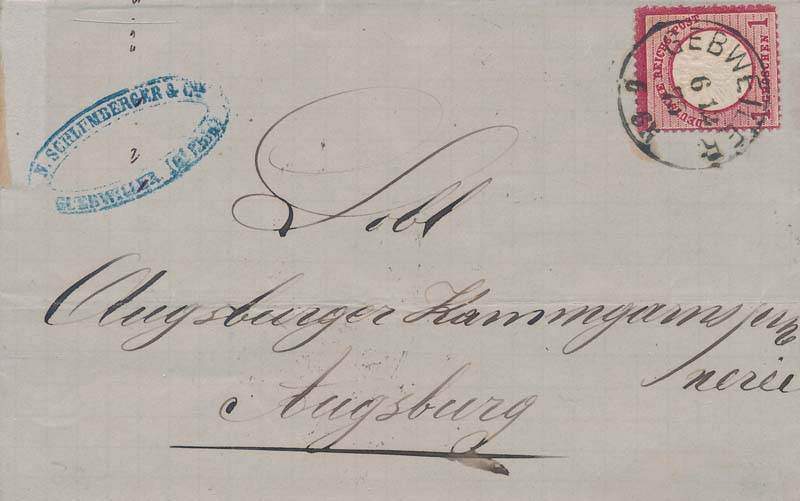 N. SCHLUMBERGER & Cie
GUEBWILLER (Ht Rhin)
1 DEUTSCHE REICHS-POST 1
GROSCHEN
GEBWEILER
6 12
Löbl
Augsburger Kammgarnspin
nerei
Augsburg